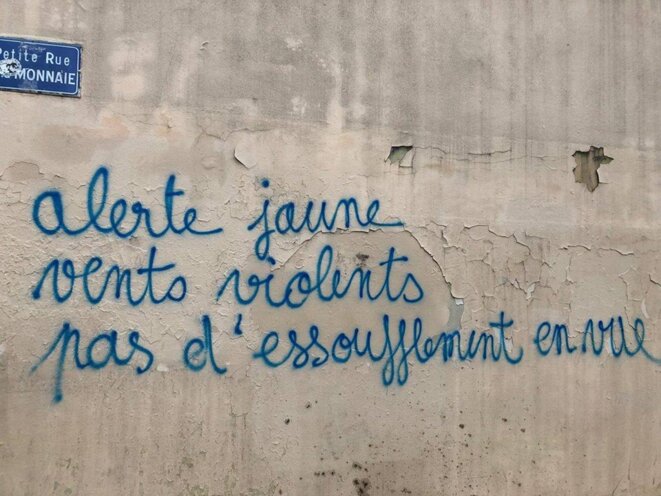 Petite Rue
MONNAIE
alerte jaune
vents violents
pas d'essoufflement en vue